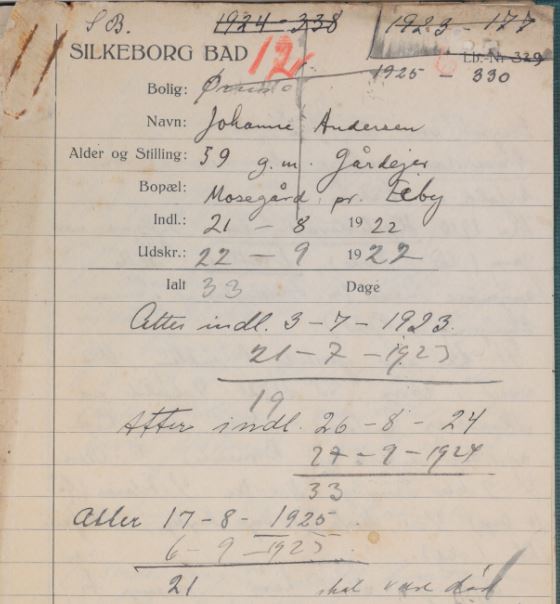 S B. 1924-338 1923-177
SILKEBORG BAD 12 Lb.-Nr 329
1925 - 330
Bolig:
Navn: Johanne Andersen
Alder og Stilling: 59 g.m. Gårdejer
Bopæl: Mosegård, pr. Eeby
Indl.: 21 - 8 1922
Udskr.: 22 - 9 1922
Ialt 33 Dage
Atter indl. 3-7-1923.
21-7-1923
19
Atter indl. 26-8-24
27-9-1924
33
Atter 17-8-1925
6-9-1925
21 skal være død